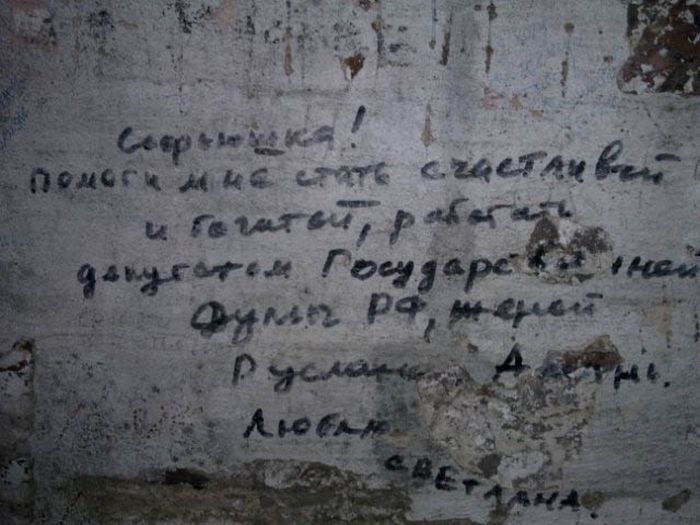 Софьюшка!
Помоги мне стать счастливой
и богатой, работать
депутатом Государственной
Думы РФ, женой
Руслана
Люблю
Светлана.